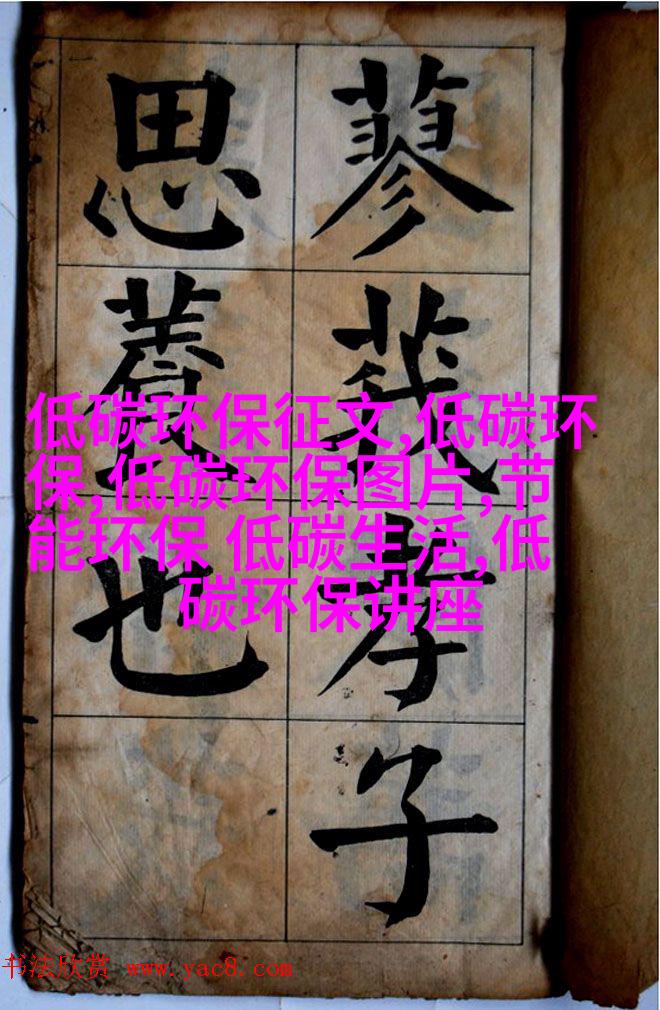 蓼莪孝子
思養也
低碳环保征文,低碳环
保,低碳环保图片,节
能环保 低碳生活,低
碳环保讲座
书法欣赏 www.yac8.com